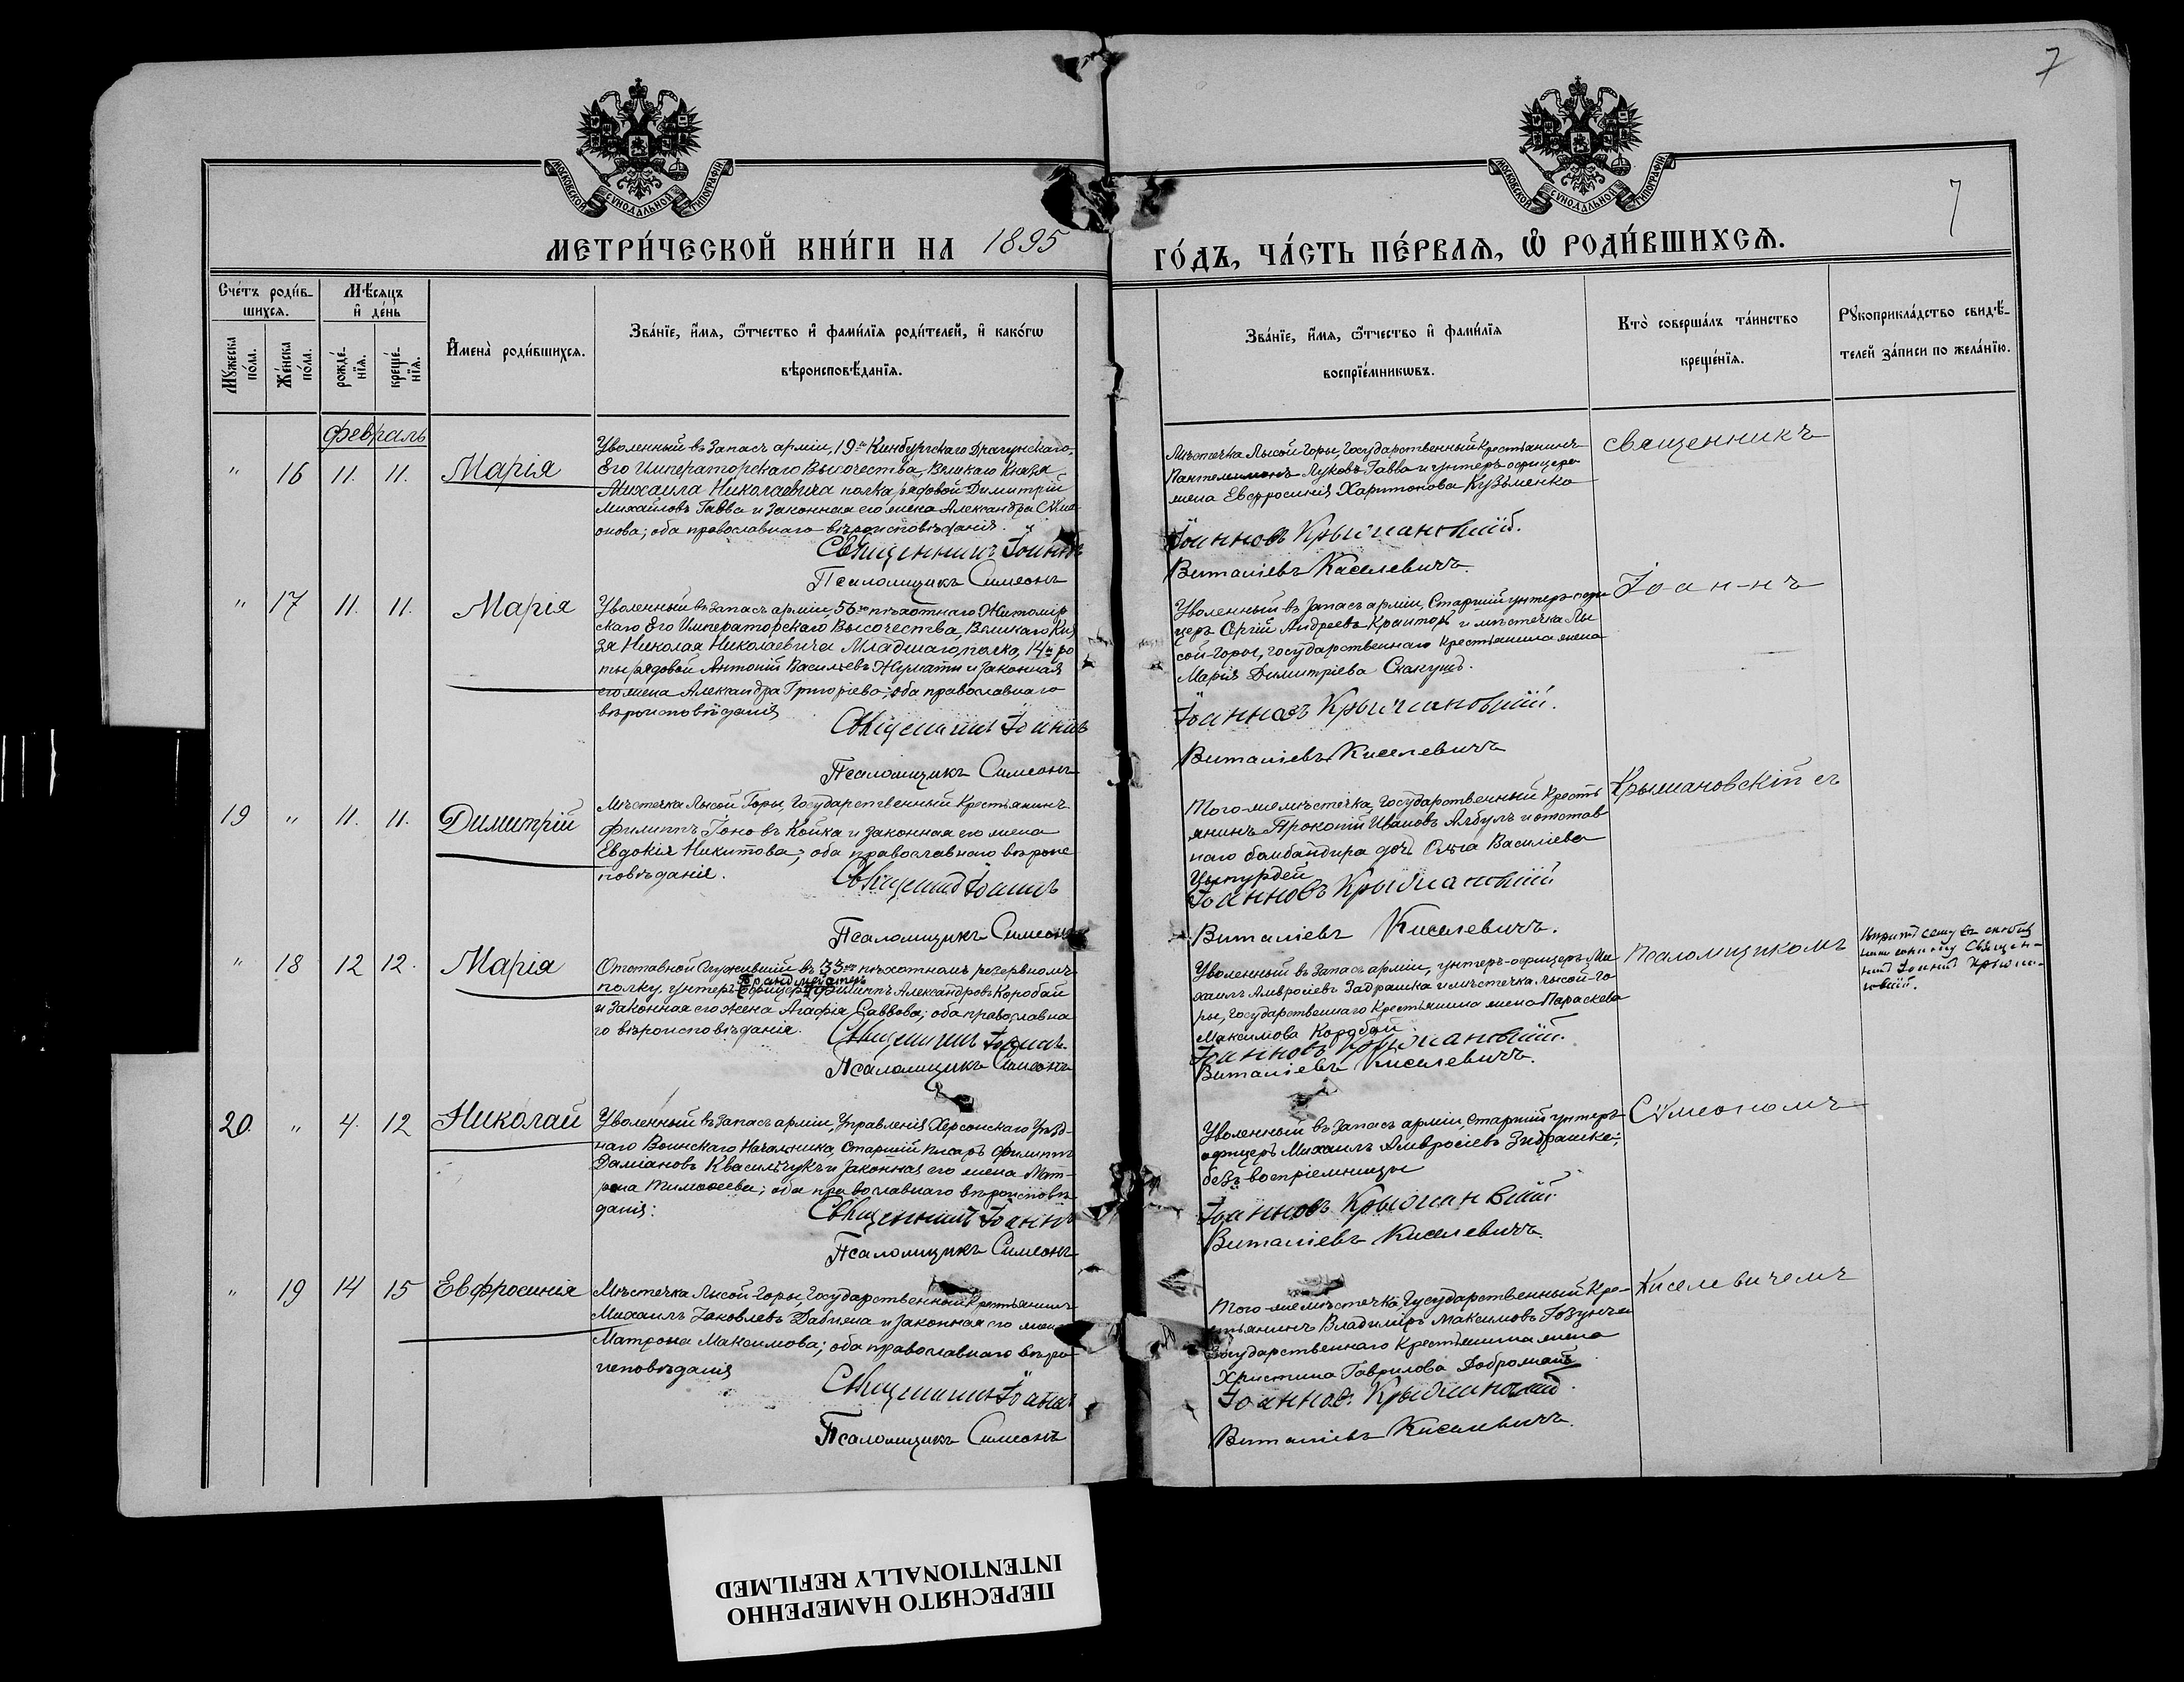 7
МОСКОВСКОЙ СѴНОДАЛЬНОЙ ТИПОГРАФІИ
МОСКОВСКОЙ СѴНОДАЛЬНОЙ ТИПОГРАФІИ
7
МЕТРИ́ЧЕСКОЙ КНИ́ГИ НА 1895
ГО́ДЪ, ЧА́СТЬ ПЕ́РВАЯ, Ѡ РОДИ́ВШИХСЯ.
Сче́тъ роди́в-
шихся.
Мѣсяцъ
и де́нь
Му́жеска по́ла.
Же́нска по́ла.
рожде́-
нїя.
креще́-
нїя.
Имена̀ роди́вшихся.
Зва́нїе, и́мя, ѻ҆́тчество и фами́лїя роди́телей, и како́гѡ
вѣроисповѣ́данїя.
Зва́нїе, и́мя, ѻ҆́тчество и фами́лїя
воспрїе́мникѡвъ.
Кто̀ соверша́лъ та́инство
креще́нїя.
Рꙋкоприкла́дство свидѣ́-
телей за́писи по жела́нїю.
Февраль
" 16 11. 11. Марія
Уволенный въ Запасъ арміи, 19го Кинбургскаго Драгунскаго,
Его Императорскаго Высочества, Великаго Князя
Михаила Николаевича полка, рядовой Димитрій
Михайловъ Гавва и законная его жена Александра Сѵме-
онова; оба православнаго вѣроисповѣданія.
Священникъ Іоаннъ
Псаломщикъ Симеонъ
Мѣстечка Лысой Горы, Государственный Крестьянинъ
Пантелеимонъ Луковъ Гавва и унтеръ-офицера
жена Евфросинія Харитонова Кузьменко
Іоанновъ Крыжановскій.
Виталіевъ Киселевичъ.
Священникъ
" 17 11. 11. Марія
Уволенный въ Запасъ арміи, 56го пѣхотнаго Житомір
скаго Его Императорскаго Высочества, Великаго Кня
зя Николая Николаевича Младшаго полка, 14й ро
ты рядовой Антоній Васильевъ и законная
его жена Александра Григоріева; оба православнаго
вѣроисповѣданія
Священникъ Іоаннъ
Псаломщикъ Симеонъ
Уволенный въ Запасъ арміи, Старшій унтеръ-офи
церъ Сергій Андреевъ и мѣстечка Лы
сой-Горы, государственнаго крестьянина жена
Марія Димитріева
Іоанновъ Крыжановскій.
Виталіевъ Киселевичъ
Іоан-нъ
19 " 11. 11. Димитрій
Мѣстечка Лысой Горы, Государственный Крестьянинъ
Филиппъ Іоновъ Койка и законная его жена
Евдокія Никитова; оба православнаго вѣроис
повѣданія.
Священникъ Іоаннъ
Псаломщикъ Симеонъ
Того-же мѣстечка, Государственный Кресть
янинъ Прокопій Ивановъ Албулъ и отстав
наго бомбандира дочь Ольга Василіева
Іоанновъ Крыжановскій
Виталіевъ Киселевичъ.
Крыжановскій съ
" 18 12 12. Марія
Отставной Служившій въ 33мъ пѣхотномъ резервномъ
полку, унтеръ-офицеръ Филиппъ Александровъ Коробай
и Законная его жена Агафія Саввова; оба православна
го вѣроисповѣданія.
Священникъ Іоаннъ
Псаломщикъ Симеонъ
Уволенный въ Запасъ арміи, унтеръ-офицеръ Ми
хаилъ Амвросіевъ Задрашка и мѣстечка Лысой-Го
ры, Государственнаго Крестьянина жена Параскева
Максимова Коробай
Іоанновъ Крыжановскій.
Виталіевъ Киселевичъ.
Псаломщикомъ
20. " 4. 12 Николай
Уволенный въ Запасъ арміи, Управленія Херсонскаго Уѣзд-
наго Воинскаго Начальника, Старшій писарь Филиппъ
Даміановъ Квасничукъ и Законная его жена Мат-
рона Тимоѳеева; оба православнаго вѣроисповѣ
данія:
Священникъ Іоаннъ
Псаломщикъ Симеонъ
Уволенный въ Запасъ арміи, Старшій унтеръ-
офицеръ Михаилъ Амвросіевъ Задрашка;
безъ воспріемницы
Іоанновъ Крыжановскій
Виталіевъ Киселевичъ.
Сѵмеономъ
" 19 14 15 Евфросинія
Мѣстечка Лысой-Горы, Государственный Крестьянинъ
Михаилъ Іаковлевъ и законная его жена
Матрона Максимова; оба православнаго вѣро
исповѣданія
Священникъ Іоаннъ
Псаломщикъ Симеонъ
Того-же мѣстечка, Государственный Кре-
стьянинъ Владиміръ Максимовъ и
Государственнаго Крестьянина жена
Христина Гаврилова
Іоанновъ Крыжановскій.
Виталіевъ Киселевичъ.
Киселевичемъ
ПЕРЕСНЯТО НАМЕРЕННО
INTENTIONALLY REFILMED